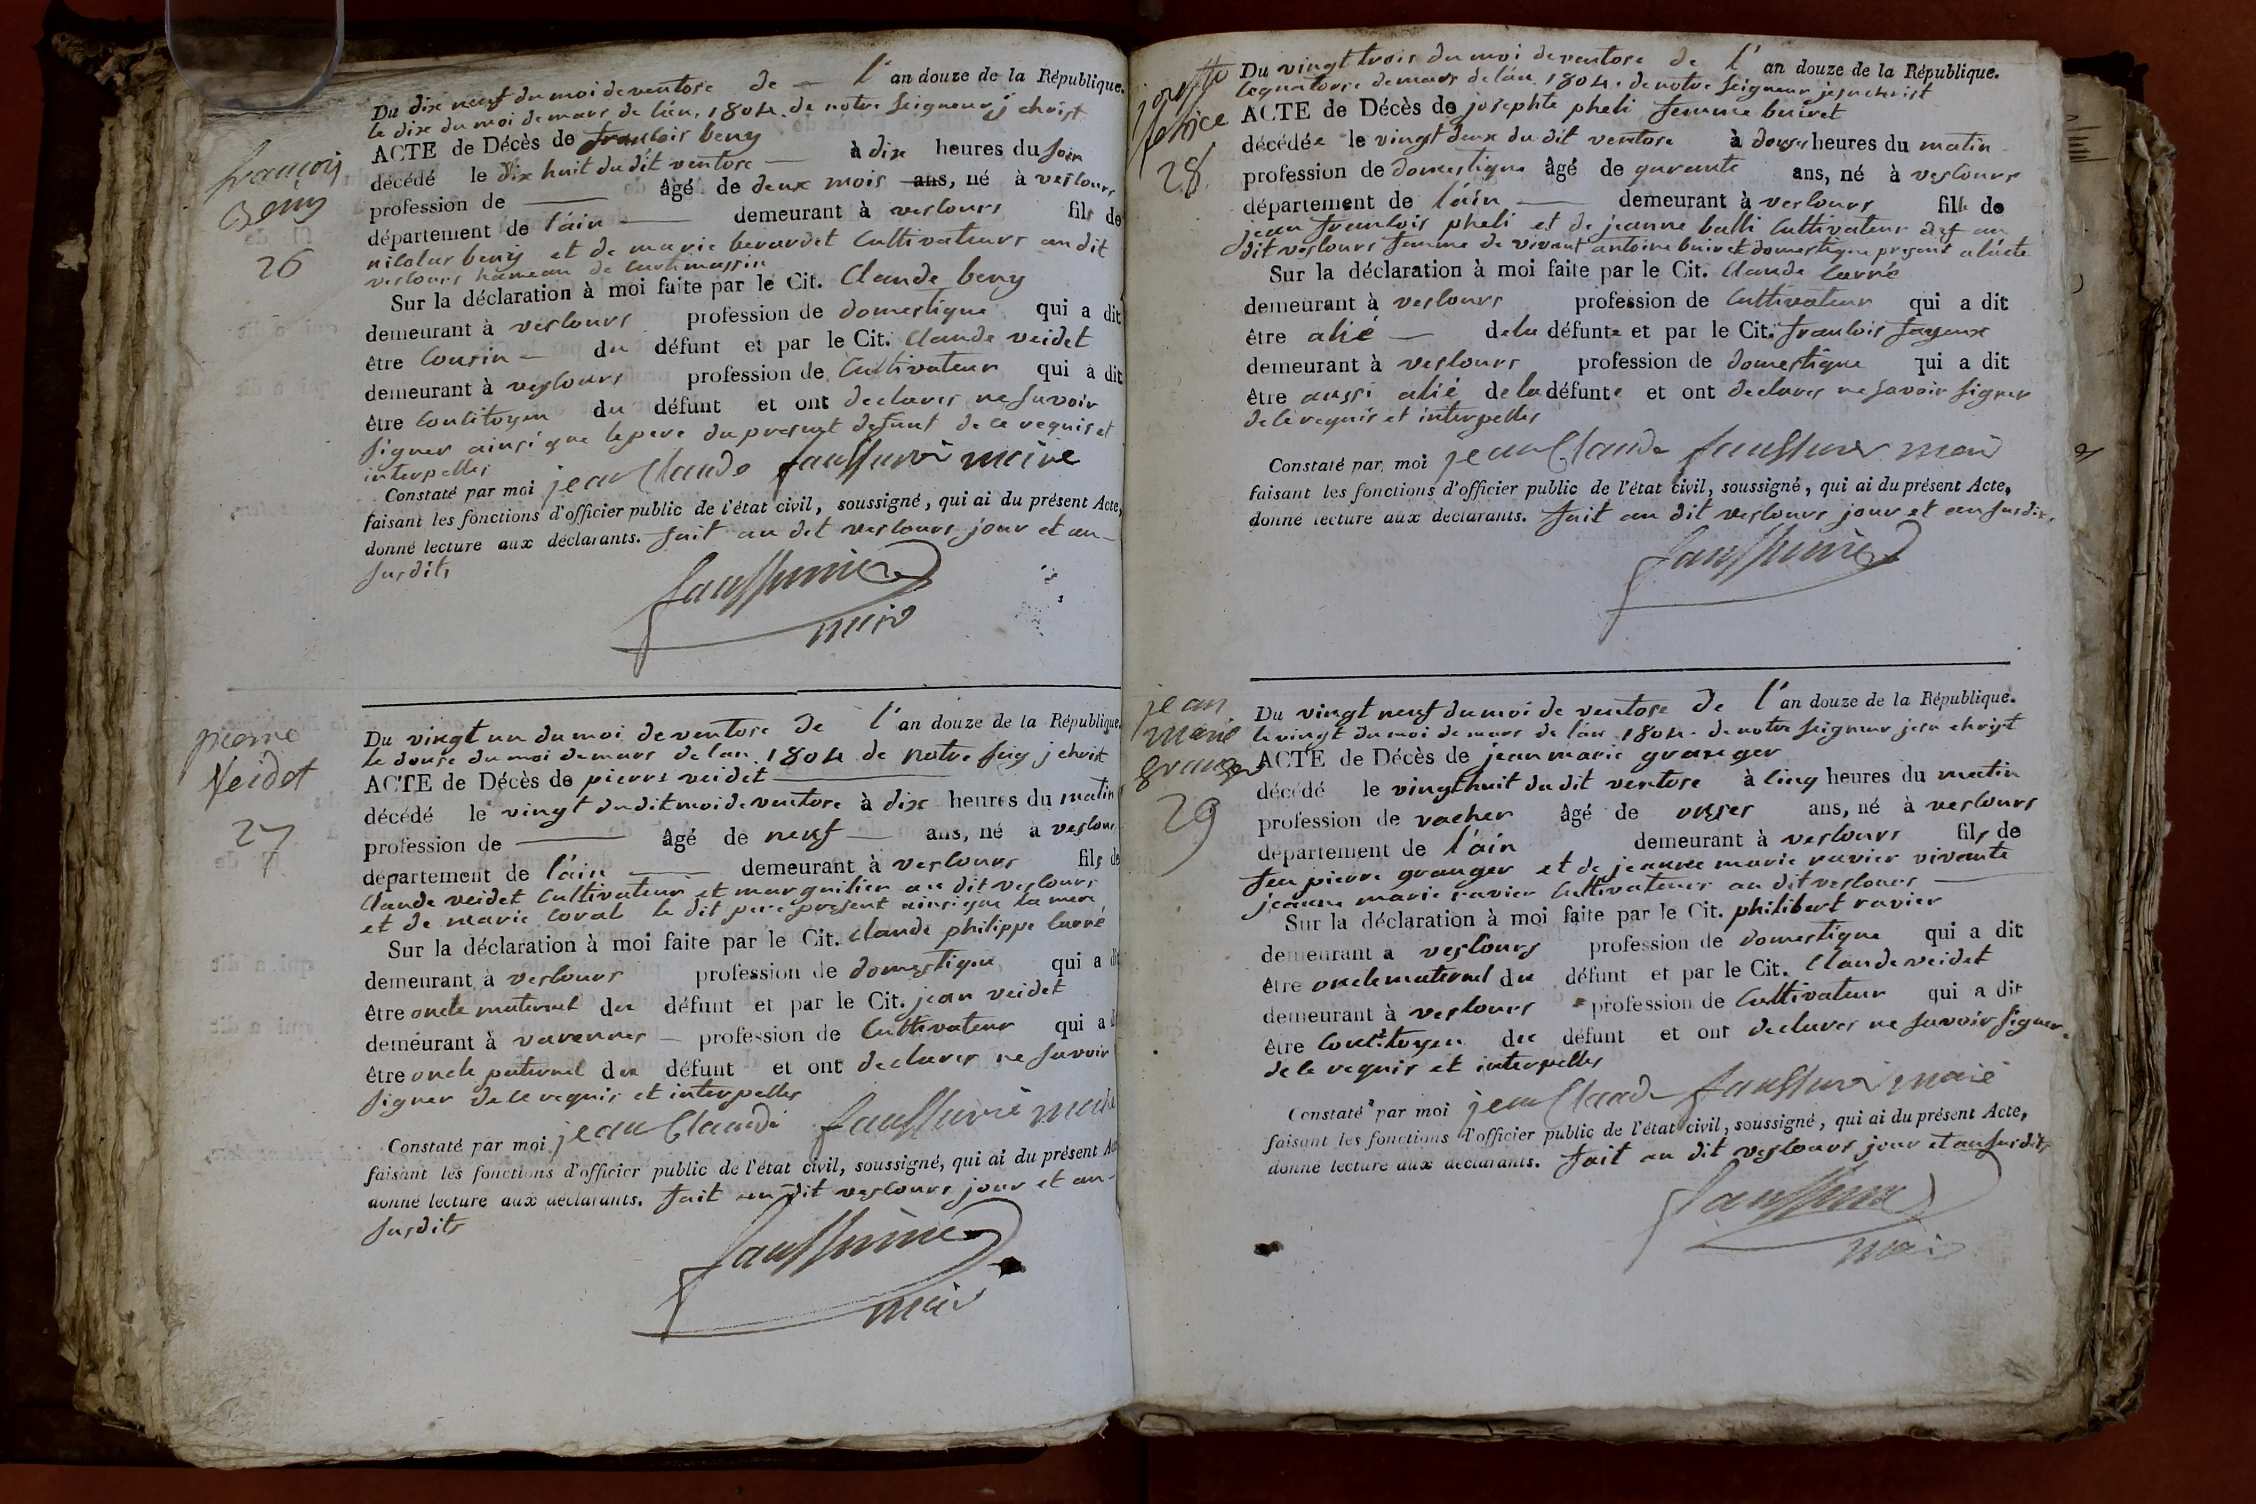 françois
Beny
26
Du dix neuf du moi de ventose de l'an douze de la République.
le dix du moi de mars de l'én. 1804. de notre seigneur j christ
ACTE de Décès de franlois beny
décédé le dix huit du dit ventose à dix heures du soir
profession de âgé de deux mois ans, né à veslours
département de l'áin demeurant à veslours fils de
nicolas beny et de marie berardet Cultivateurs au dit
veslours hameau de
Sur la déclaration à moi faite par le Cit. Claude beny
demeurant à veslours profession de domestique qui a dit
être Cousin du défunt et par le Cit. Claude veidet
demeurant à veslours profession de Cultivateur qui a dit
être Contitoyen du défunt et ont declares ne savoir
signer ainsi que le pere du present defunt de ce requis et
interpelles
Constaté par moi jean Claude maire
faisant les fonctions d'officier public de l'état civil, soussigné, qui ai du présent Acte,
donné lecture aux déclarants. fait au dit veslours jour et an
susdits
pierre
Veidet
27
Du vingt un du moi de ventose de l'an douze de la République.
le douse du moi de mars de lan 1804 de notre seig j christ
ACTE de Décès de pierre veidet
décédé le vingt du dit moi de ventose à dix heures du matin
profession de âgé de neuf ans, né à veslours
département de l'áin demeurant à veslours fils de
Claude veidet Cultivateur et marguilier au dit veslours
et de marie Coral le dit pere present ainsi que la mere
Sur la déclaration à moi faite par le Cit. Claude philippe Carré
demeurant à veslours profession de domestique qui a dit
être oncle maternel du défunt et par le Cit. jean veidet
demeurant à varennes profession de Cultivateur qui a dit
être oncle paternel du défunt et ont declares ne savoir
signer de ce requis et interpelles
Constaté par moi jean Claude maire
faisant les fonctions d'officier public de l'état civil, soussigné, qui ai du présent Acte
donné lecture aux déclarants. fait au dit veslours jour et an
susdits
maire
28
Du vingt trois du moi de ventose de l'an douze de la République.
le quatorse de mars de lán 1804. de notre seigneur jesu christ
ACTE de Décès de josephte pheli femme buiret
décédée le vingt deux du dit ventose à douse heures du matin
profession de domestique âgé de quarante ans, né à veslours
département de l'áin demeurant à veslours fille de
jean franlois pheli et de jeanne balli Cultivateur au
dit veslours femme de vivant antoine buiret domestique present a l'acte
Sur la déclaration à moi faite par le Cit. Claude Carré
demeurant à veslours profession de Cultivateur qui a dit
être alié de la défunte et par le Cit. franlois fayeux
demeurant à veslours profession de domestique qui a dit
être aussi alié de la défunte et ont declares ne savoir signer
de ce requis et interpelles
Constaté par moi jean Claude
faisant les fonctions d'officier public de l'état civil, soussigné, qui ai du présent Acte,
donné lecture aux déclarants. fait au dit veslours jour et an susdits
jean
marie
granger
29
Du vingt neuf du moi de ventose de l'an douze de la République.
le vingt du moi de mars de lán 1804. de notre seigneur jesu christ
ACTE de Décès de jean marie granger
décédé le vingt huit du dit ventose à Cinq heures du matin
profession de vacher âgé de onser ans, né à veslours
département de l'áin demeurant à veslours fils de
feu pierre granger et de jeanne marie ravier vivante
jeanne marie ravier Cultivateurs au dit veslours
Sur la déclaration à moi faite par le Cit. philibert ravier
demeurant à veslours profession de domestique qui a dit
être oncle maternel du défunt et par le Cit. Claude veidet
demeurant à veslours profession de Cultivateur qui a dit
être Contitoyen du défunt et ont declares ne savoir signer
de ce requis et interpelles
Constaté par moi jean Claude
faisant les fonctions d'officier public de l'état civil, soussigné, qui ai du présent Acte,
donné lecture aux déclarants. fait au dit veslours jour et an susdits